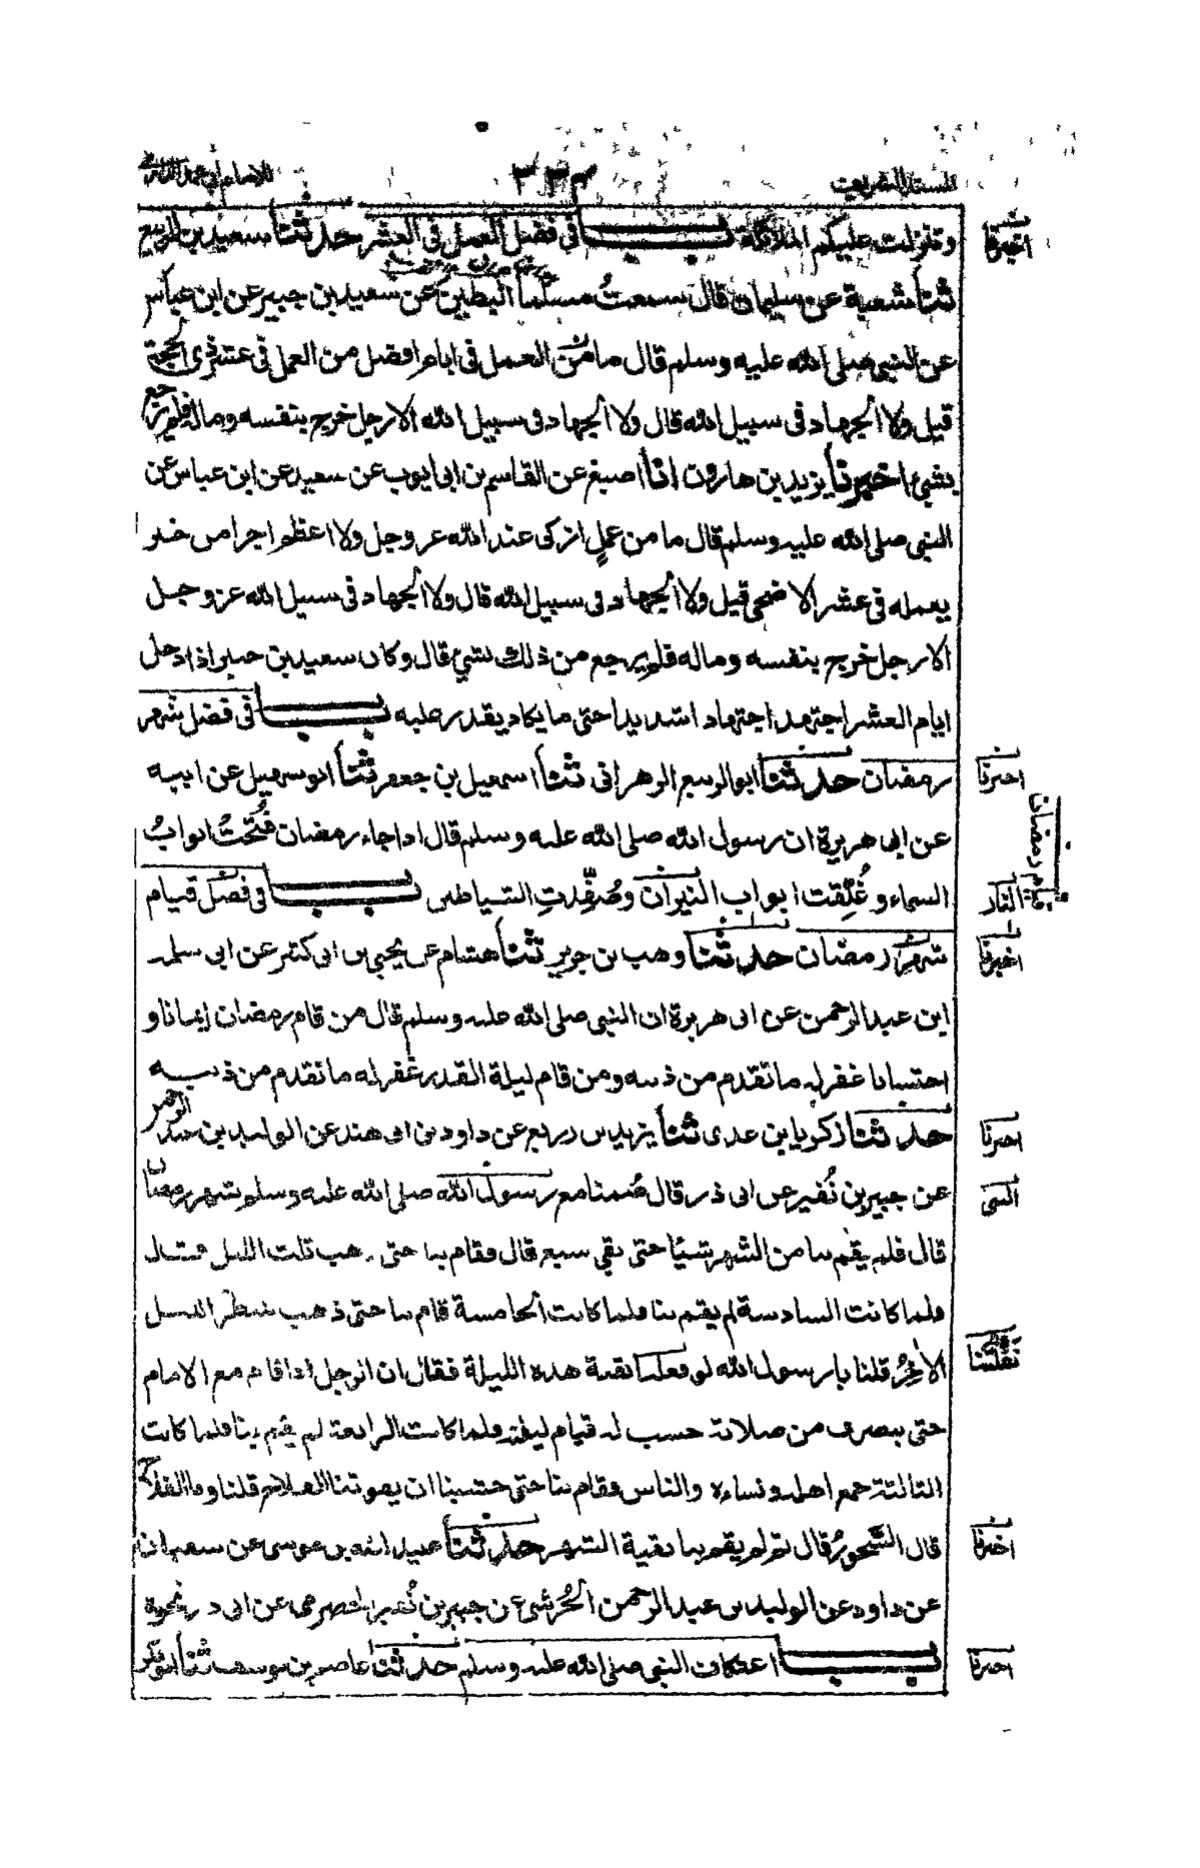 المسند الشريف ٢٢٣ للامام أبي محمد الدارمي
وتنزلت عليكم الملائكة باب في فضل العمل في العشر حدثنا سعيد بن الربيع
ثنا شعبة عن سليمان قال سمعتُ مسلما البطين عن سعيد بن جبير عن ابن عباس
عن النبي صلى الله عليه وسلم قال ما من العمل في ايام افضل من العمل في عشر ذي الحجة
قيل ولا الجهاد في سبيل الله قال ولا الجهاد في سبيل الله الا رجل خرج بنفسه وماله فلم يرجع
بشئ اخبرنا يزيد بن هارون انا اصبغ عن القاسم بن ابي ايوب عن سعيد عن ابن عباس عن
النبي صلى الله عليه وسلم قال ما من عملٍ ازكى عند الله عز وجل ولا اعظم اجرا من خير
يعمله في عشر الاضحى قيل ولا الجهاد في سبيل الله قال ولا الجهاد في سبيل الله عز وجل
الا رجل خرج بنفسه وماله فلم يرجع من ذلك بشئ قال وكان سعيد بن جبير اذا دخل
ايام العشر اجتهد اجتهادا شديدا حتى ما يكاد يقدر عليه باب في فضل شهر
رمضان حدثنا ابو الربيع الزهراني ثنا اسمعيل بن جعفر ثنا ابو سهيل عن ابيه
عن ابي هريرة ان رسول الله صلى الله عليه وسلم قال اذا جاء رمضان فُتحتْ ابوابُ
السماء وغُلّقت ابواب النيران وصُفّدتِ الشياطين باب في فضل قيام
شهر رمضان حدثنا وهب بن جرير ثنا هشام عن يحيى بن ابي كثير عن ابي سلمة
ابن عبد الرحمن عن ابي هريرة ان النبي صلى الله عليه وسلم قال من قام رمضان ايمانا و
احتسابا غفر له ما تقدم من ذنبه ومن قام ليلة القدر غفر له ما تقدم من ذنبه
حدثنا زكريا بن عدي ثنا يزيد بن زريع عن داود بن ابي هند عن الوليد بن عبد الرحمن
عن جبير بن نُفير عن ابي ذر قال صُمنا مع رسول الله صلى الله عليه وسلم شهر رمضان
قال فلم يقم بنا من الشهر شيئا حتى بقي سبع قال فقام بنا حتى ذهب ثلث الليل قال
فلما كانت السادسة لم يقم بنا فلما كانت الخامسة قام بنا حتى ذهب شطر الليل
الأخِرُ قلنا يا رسول الله لو نفلتنا بقية هذه الليلة فقال ان الرجل اذا قام مع الامام
حتى ينصرف من صلاته حسب له قيام ليلته فلما كانت الرابعة لم يقم بنا فلما كانت
الثالثة جمع اهله ونساءه والناس فقام بنا حتى خشينا ان يفوتنا الفلاح قلنا وما الفلاح
قال السُّحورُ قال ثم لم يقم بنا بقية الشهر حدثنا عبيد الله بن موسى عن سفيان
عن داود عن الوليد بن عبد الرحمن الجُرشي عن جبير بن نُفير الحضرمي عن ابي ذر نحوه
باب اعتكاف النبي صلى الله عليه وسلم حدثنا عاصم بن يوسف ثنا ابو بكر
اخبرنا
اخبرنا
قيام رمضان
النار
اخبرنا
اخبرنا
النبي
نفلتنا
اخبرنا
اخبرنا